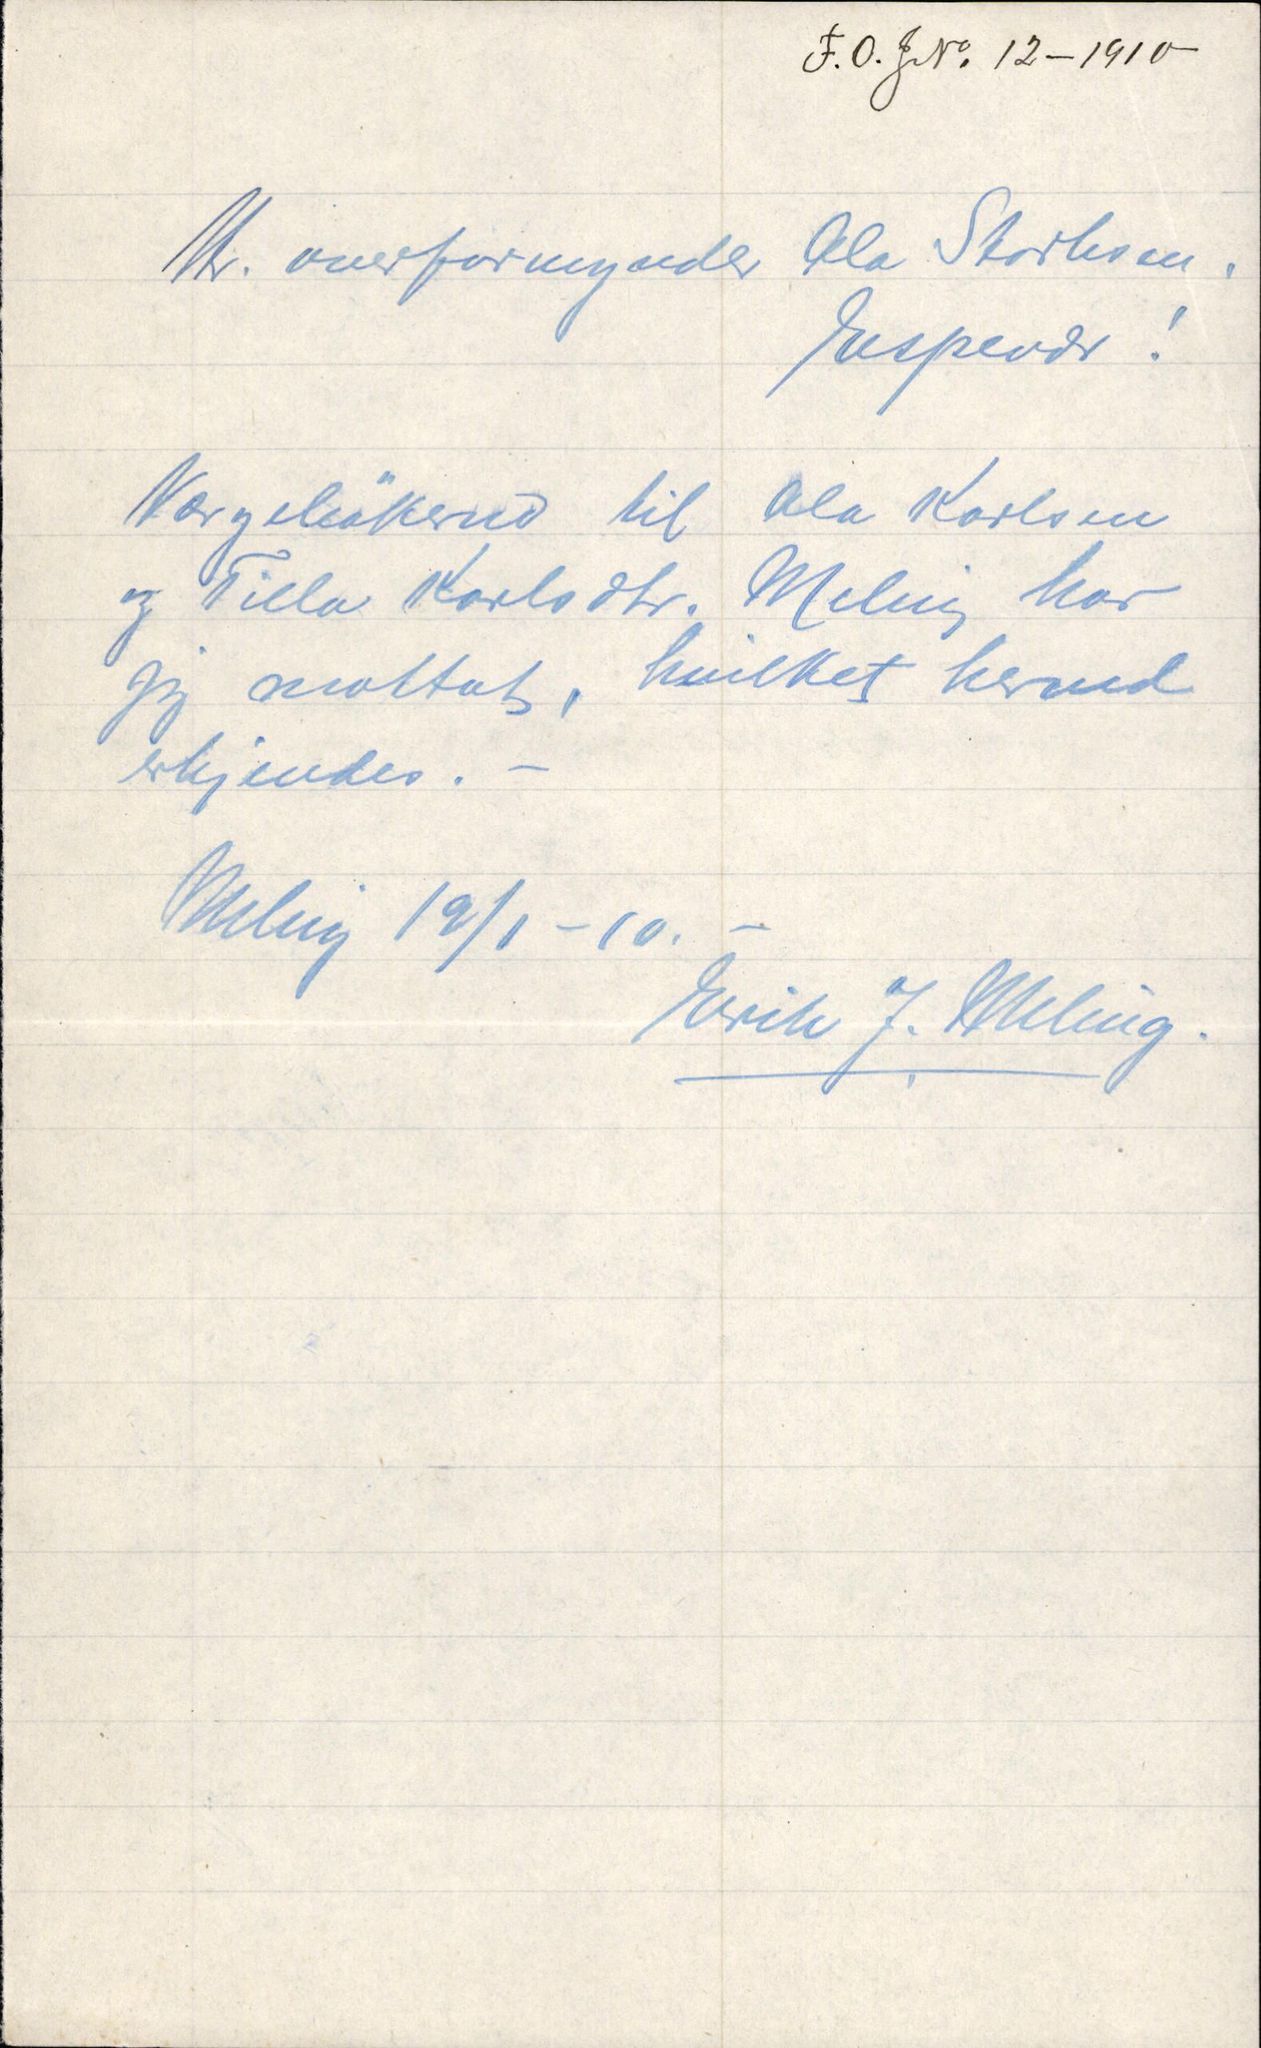 F. O. J No. 12 – 1910
Hr. overformynder Ola Storksen.
Espevær!
til Ola Karlsen
og Tilla Karlsdtr. Meling har
jeg mottat, hvilket herved
erkjendes. –
Meling 19/1 – 10. –
Erik J. Meling.